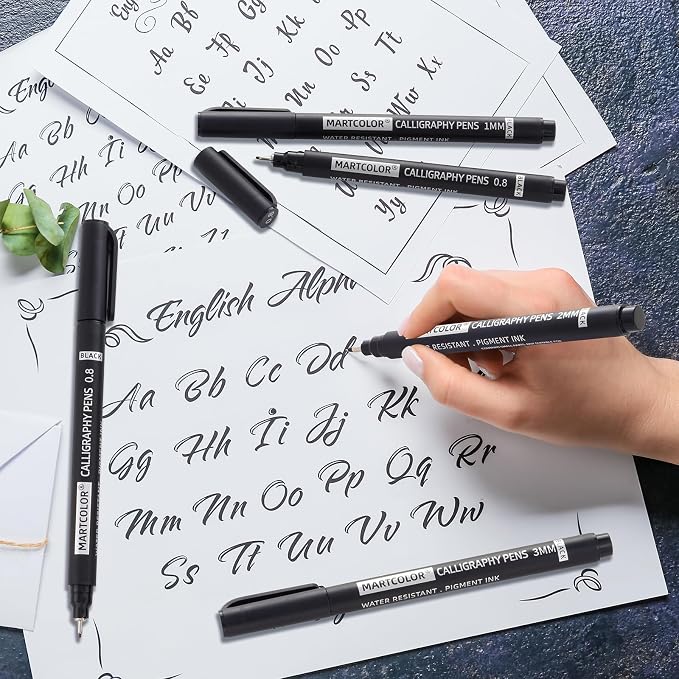 Eng
Aa Bb
Kk Pp
Ee Ff
Nn Oo Tt
Ss Xx
Ww
Yy
MARTCOLOR® CALLIGRAPHY PENS 1MM BLACK
WATER RESISTANT . PIGMENT INK
MARTCOLOR® CALLIGRAPHY PENS 0.8 BLACK
WATER RESISTANT . PIGMENT INK
Eng
Aa Bb
Gg Hh Ii
Mm Nn Oo Pp
Ss Tt Uu Vv
English Alph
Aa Bb Cc Dd
Gg Hh Ii Jj Kk
Mm Nn Oo Pp Qq Rr
Ss Tt Uu Vv Ww
CALLIGRAPHY PENS 2MM BLACK
RESISTANT . PIGMENT INK
MARTCOLOR® CALLIGRAPHY PENS 0.8 BLACK
MARTCOLOR® CALLIGRAPHY PENS 3MM BLACK
WATER RESISTANT . PIGMENT INK